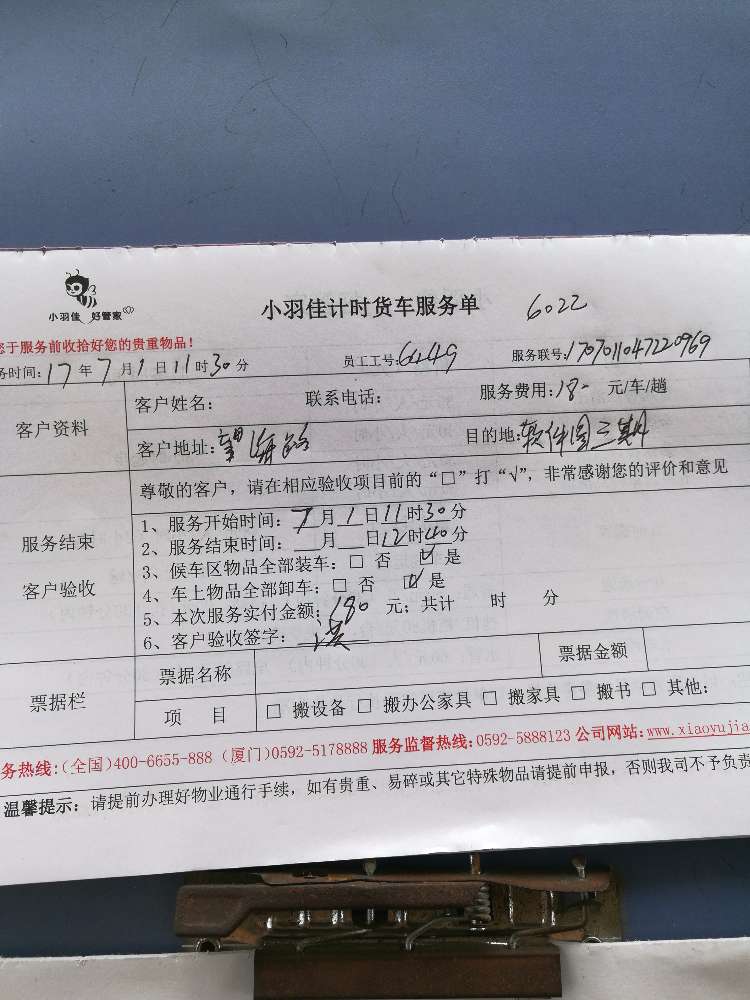 小羽佳 好管家
小羽佳计时货车服务单 6022
您于服务前收拾好您的贵重物品！
务时间:17年7月1日11时30分 员工工号:6449 服务联号:1707011047220969
客户资料
客户姓名: 联系电话: 服务费用:180 元/车/趟
客户地址:望海路 目的地:软件园三期
服务结束
客户验收
尊敬的客户，请在相应验收项目前的“□”打“√”，非常感谢您的评价和意见
1、服务开始时间:7月1日11时30分
2、服务结束时间: 月 日12时40分
3、候车区物品全部装车:□ 否 ☑ 是
4、车上物品全部卸车:□ 否 ☑ 是
5、本次服务实付金额:180 元；共计 时 分
6、客户验收签字:
票据栏
票据名称 票据金额
项 目 □ 搬设备 □ 搬办公家具 □ 搬家具 □ 搬书 □ 其他:
务热线:(全国)400-6655-888 (厦门)0592-5178888 服务监督热线:0592-5888123 公司网站:www.xiaoyujia
温馨提示：请提前办理好物业通行手续，如有贵重、易碎或其它特殊物品请提前申报，否则我司不予负责